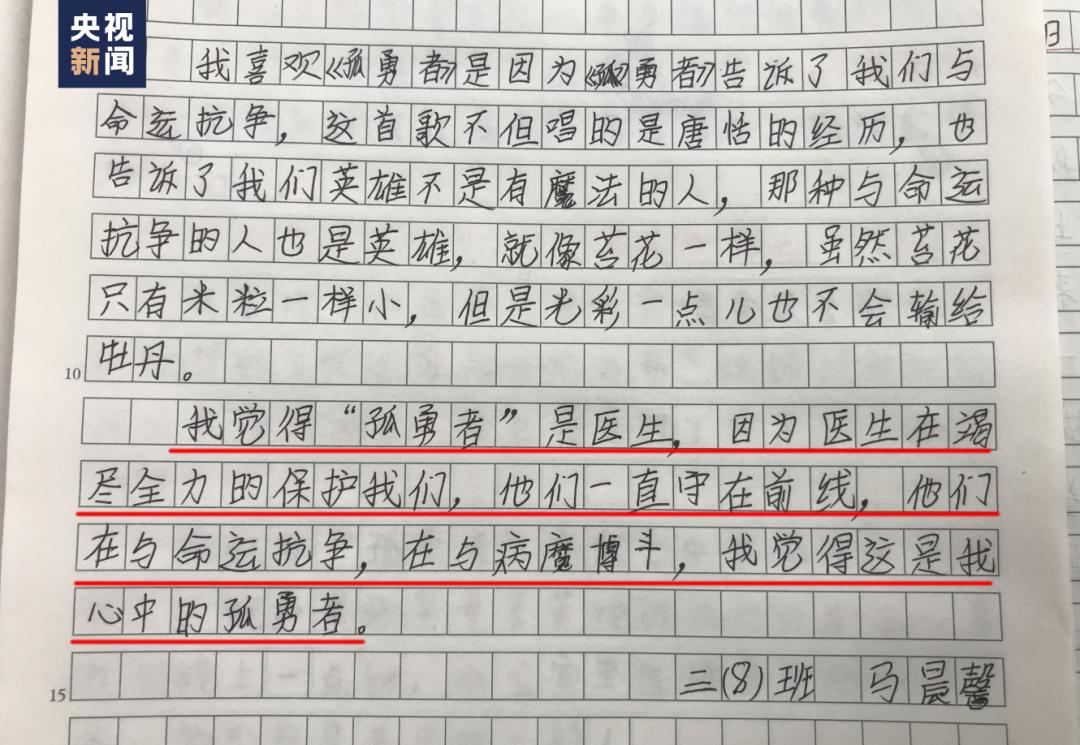 央视
新闻
日
我喜欢《孤勇者》是因为《孤勇者》告诉了我们与
命运抗争，这首歌不但唱的是唐恬的经历，也
告诉了我们英雄不是有魔法的人，那种与命运
抗争的人也是英雄，就像苔花一样，虽然苔花
只有米粒一样小，但是光彩一点儿也不会输给
10 牡丹。
我觉得“孤勇者”是医生，因为医生在竭
尽全力的保护我们，他们一直守在前线，他们
在与命运抗争，在与病魔博斗，我觉得这是我
心中的孤勇者。
15 三(8)班 马晨馨